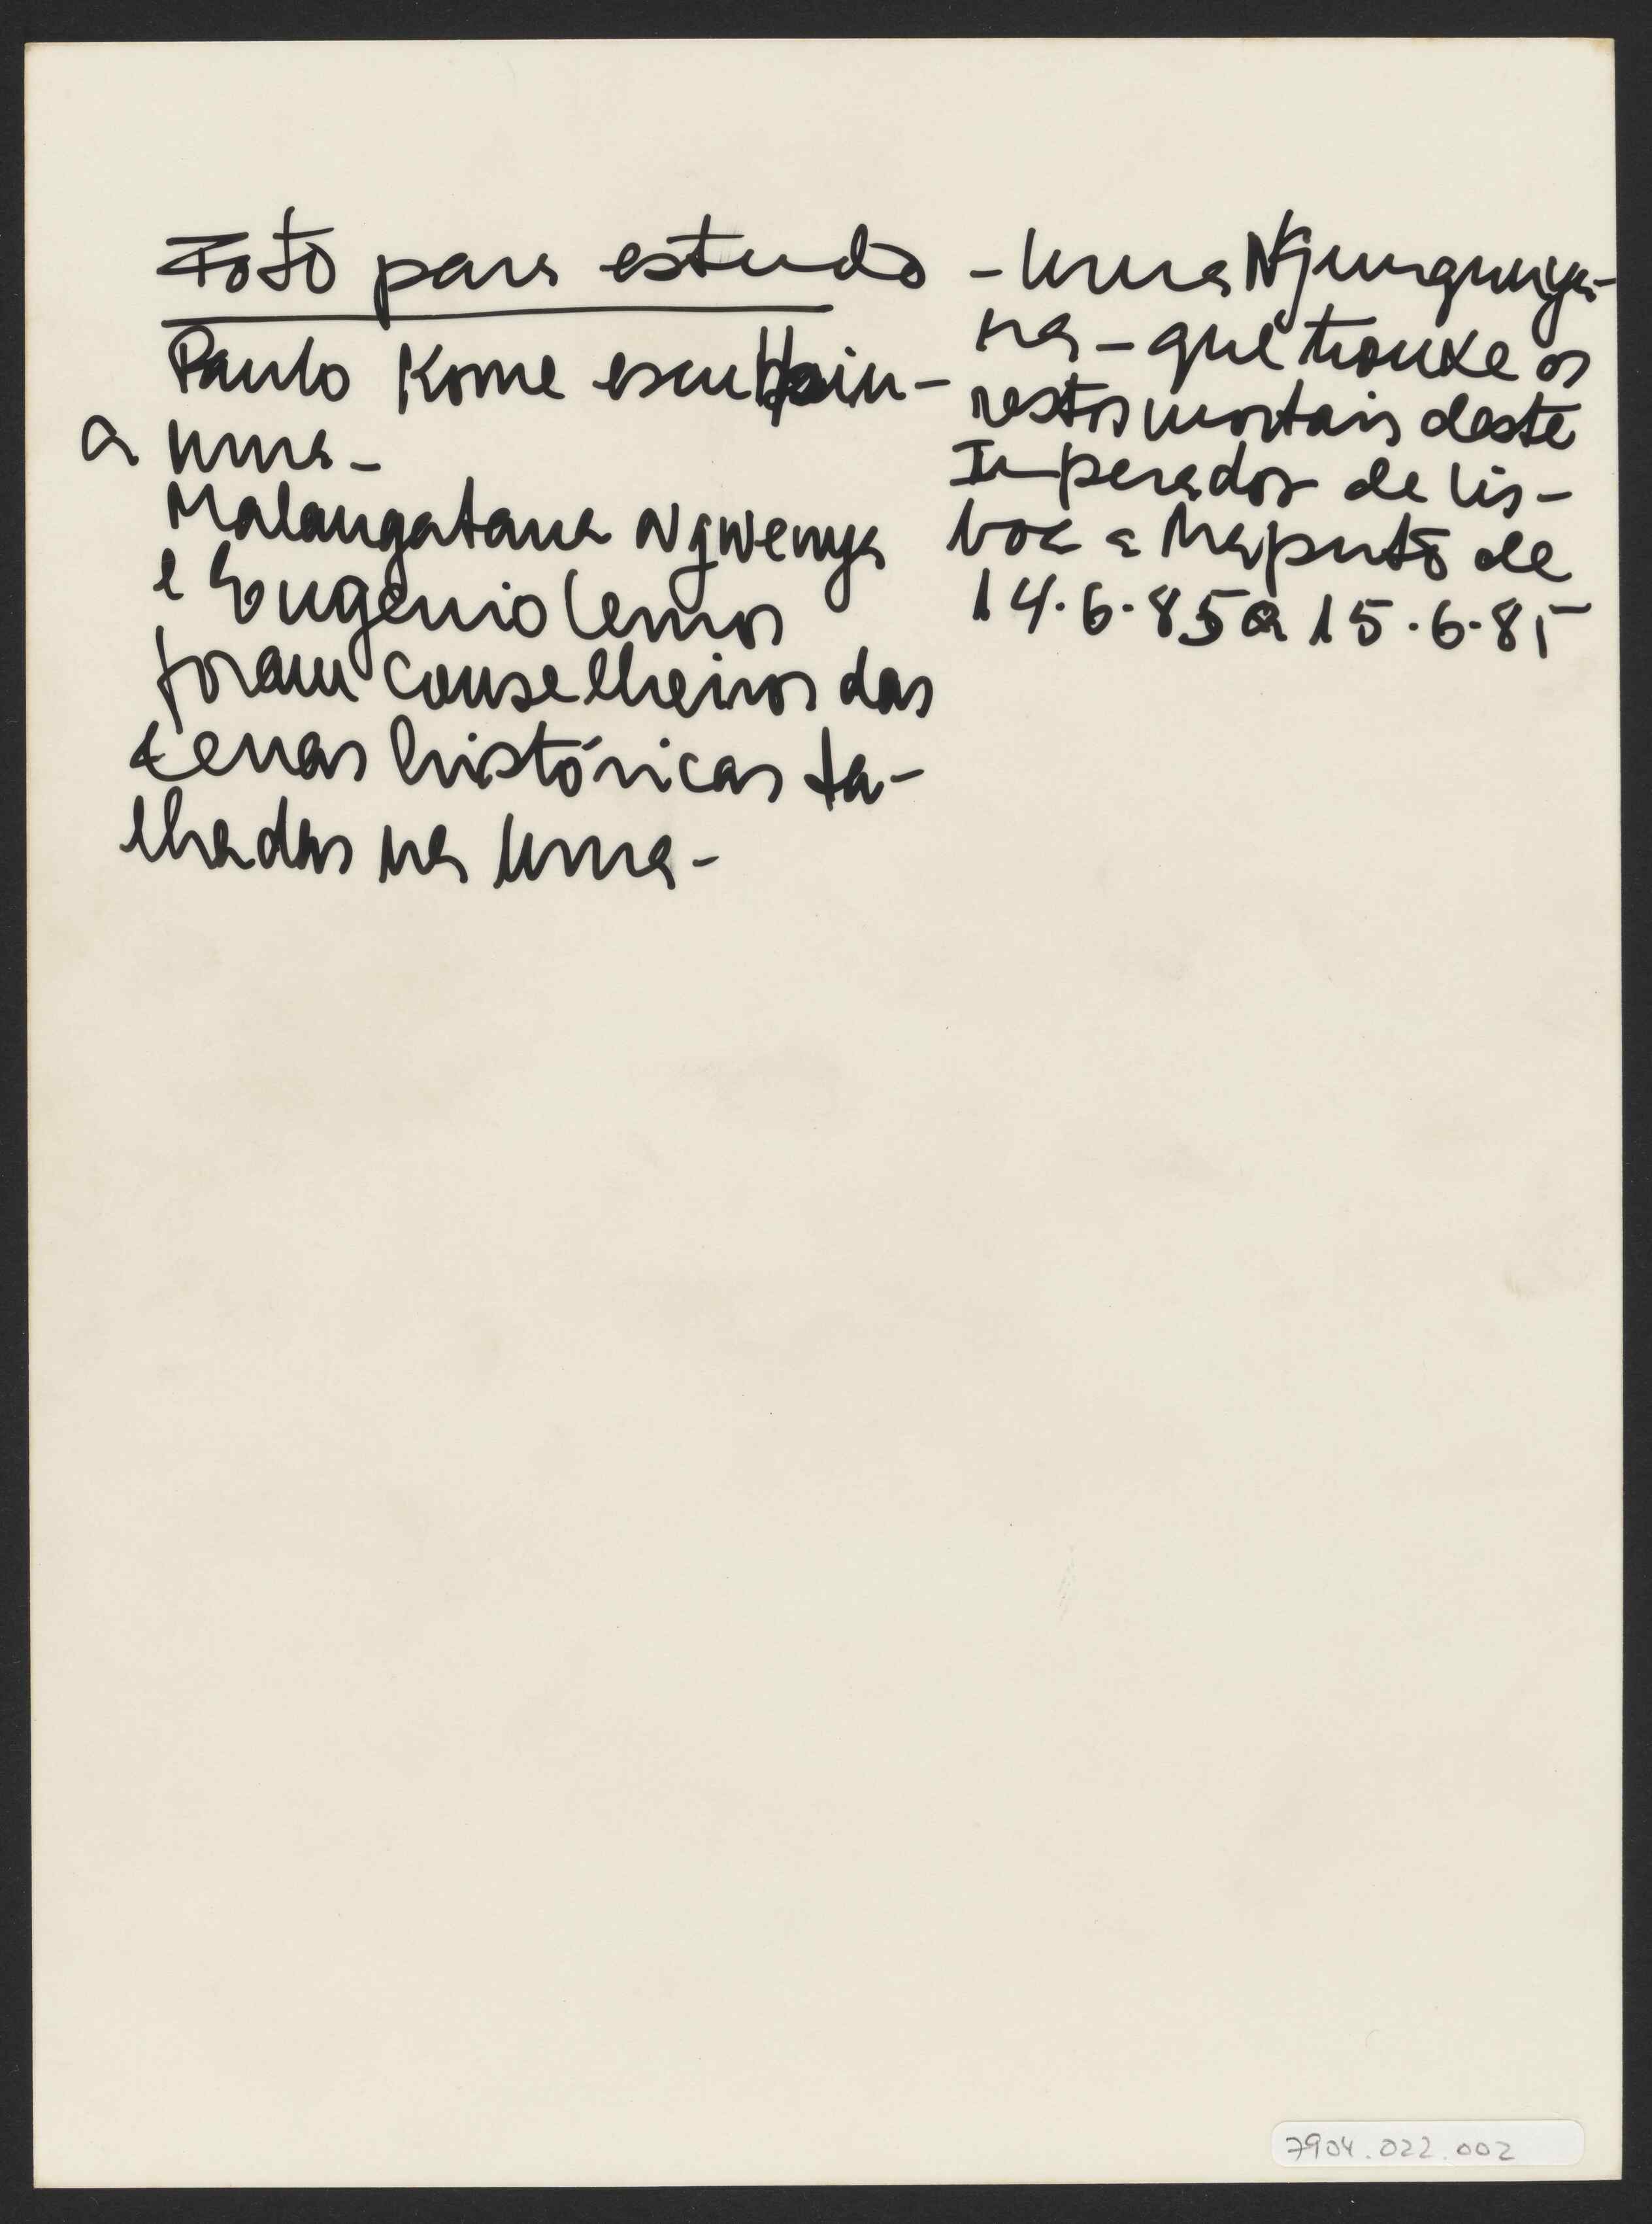 Foto para estudo
Paulo Kome esculpiu-
a urna-
Malangatana Ngwenya
e Eugénio Lemos
foram conselheiros das
cenas históricas ta-
lhadas na urna-
- Urna Ngungunya-
na - que trouxe os
restos mortais deste
Imperador de Lis-
boa a Maputo de
14.6.85 a 15.6.85
7904.022.002